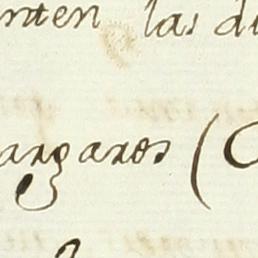 nten las di
argares (C